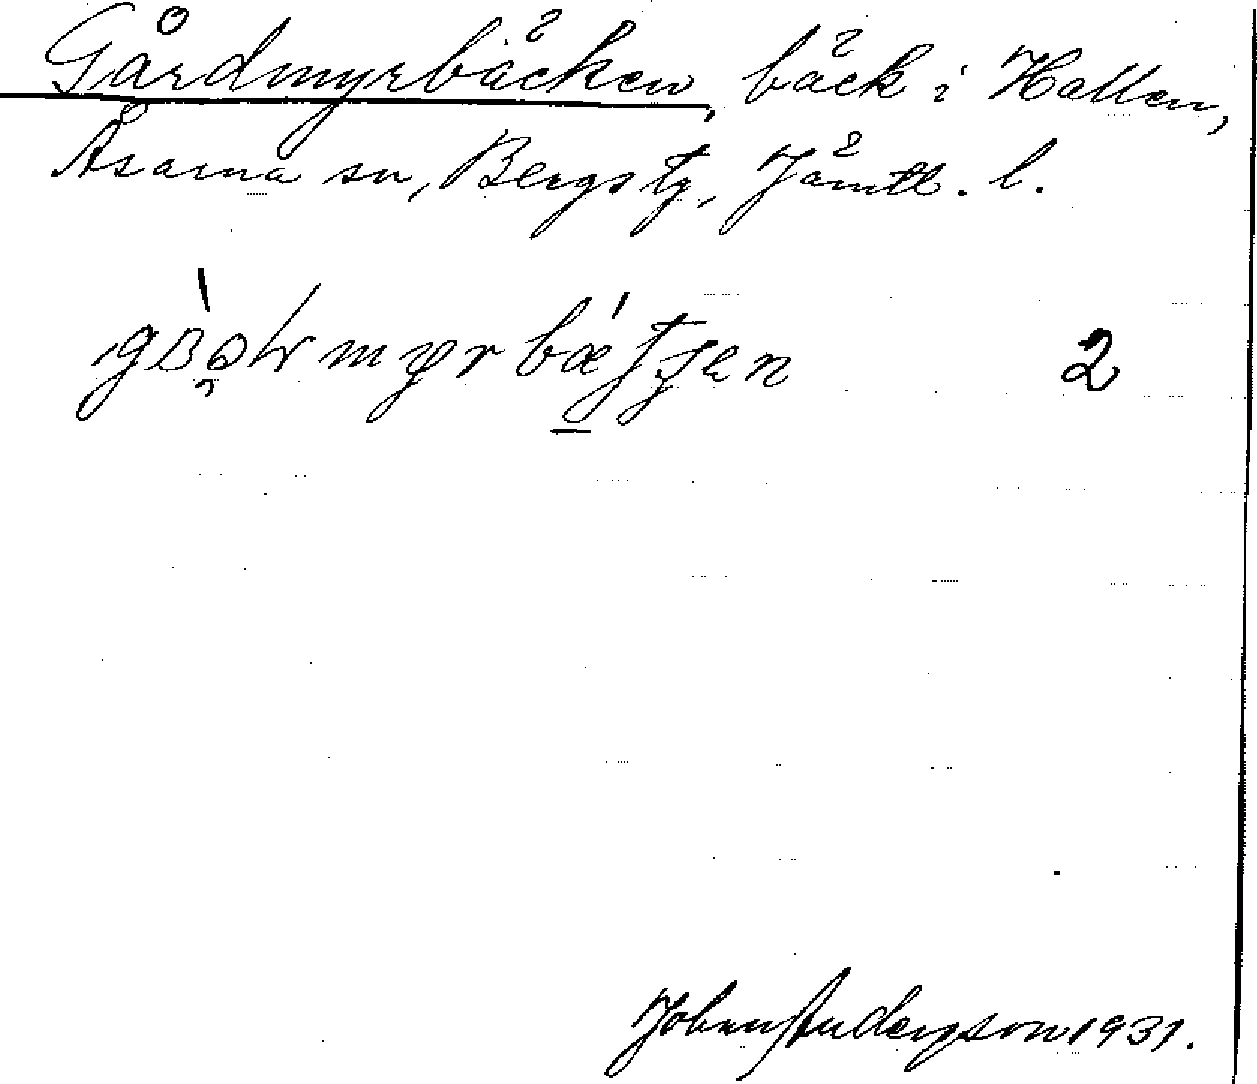 Gårdmyrbäcken, bäck i Hallen,
Åsarna sn, Bergs tg, Jämtl. l.
2
Johan Anderson 1931.